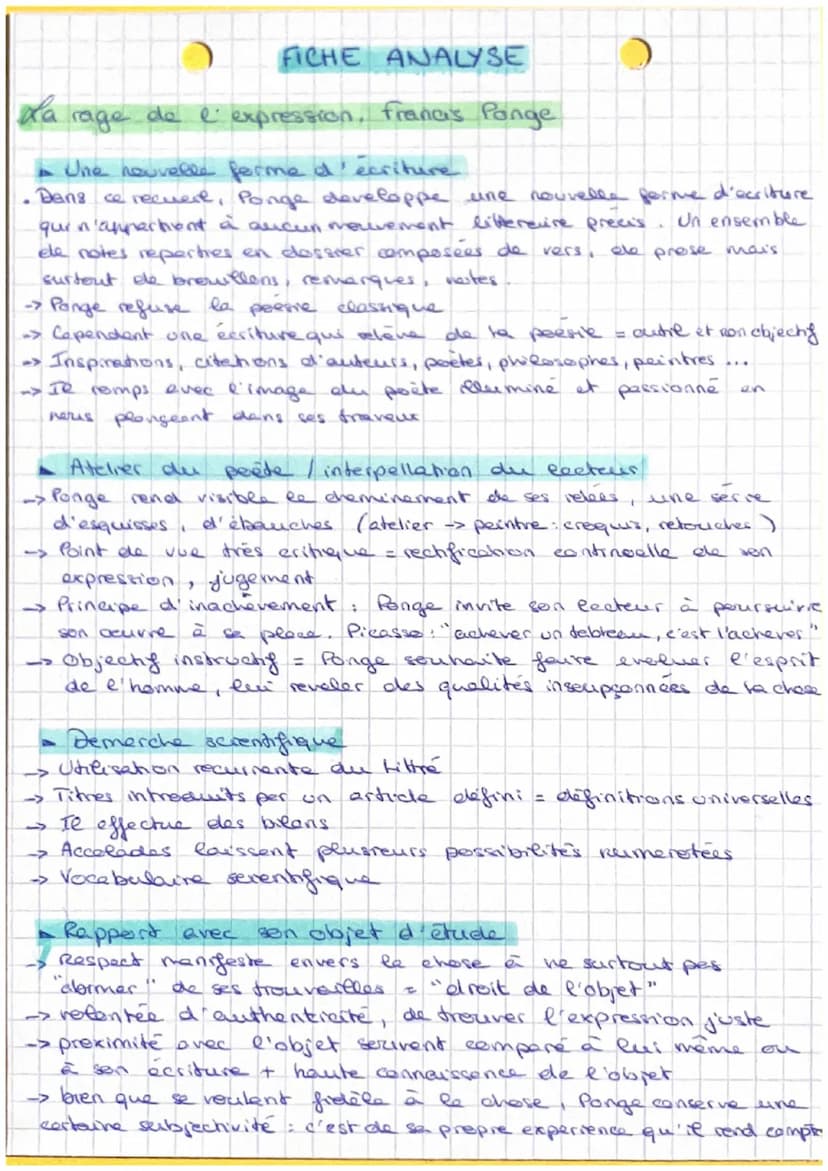 FICHE ANALYSE
La rage de l'expression, Francis Ponge
Une nouvelle forme d'écriture
. Dans ce recueil, Ponge developpe une nouvelle forme d'ecriture
qui n'appartient à aucun mouvement litteraire précis. Un ensemble
de notes reparties en dossier composées de vers, de prose mais
surtout de brouillons, remarques, notes.
-> Ponge refuse la poésie classique
-> Cependant une écriture qui relève de la poésie = outil et non objectif
-> Inspirations, citations d'auteurs, poètes, philosophes, peintres ...
-> Il romps avec l'image du poète illuminé et passionné en
nous plongeant dans ses travaux
Atelier du poète / interpellation du lecteur
-> Ponge rend visible le cheminement de ses idées, une série
d'esquisses, d'ébauches (atelier -> peintre : croquis, retouches)
-> Point de vue très critique = rectification continuelle de son
expression, jugement
-> Principe d'inachèvement : Ponge invite son lecteur à poursuivre
son œuvre à sa place. Picasso : "achever un tableau, c'est l'achever"
-> Objectif instructif = Ponge souhaite faire evoluer l'esprit
de l'homme, lui reveler des qualités insoupçonnées de la chose
Demarche scientifique
-> Utilisation recurrente du Littré
-> Titres introduits par un article défini = définitions universelles
-> Il effectue des bilans
-> Accolades laissent plusieurs possibilités numerotées
-> Vocabulaire scientifique
Rapport avec son objet d'étude
-> Respect manifeste envers la chose à ne surtout pas
"abimer" de ses trouvailles = "droit de l'objet"
-> volontée d'authenticité, de trouver l'expression juste
-> proximité avec l'objet souvent comparé à lui même ou
à son écriture + haute connaissance de l'objet
-> bien que se voulant fidèle à la chose, Ponge conserve une
certaine subjectivité : c'est de sa propre experience qu'il rend compte